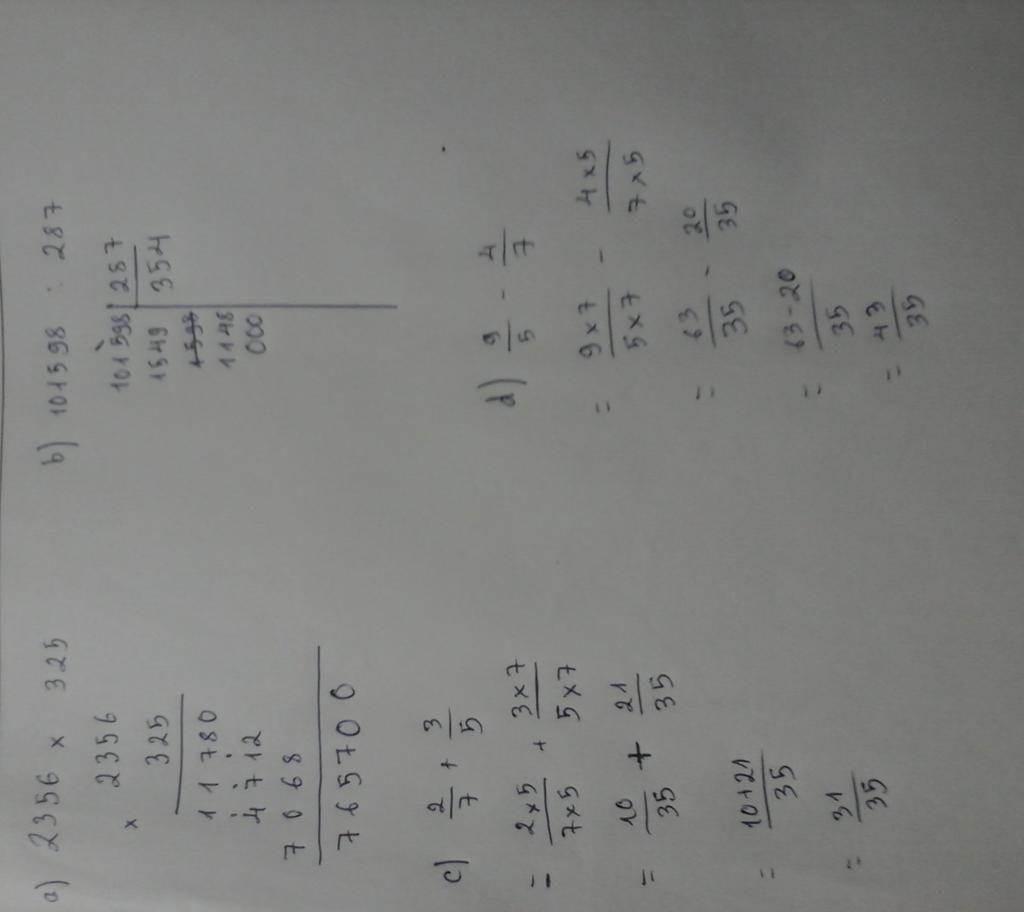 a) 2356 x 325
2356
x 325
11780
4712
7068
765700
b) 101598 : 287
101598 287
1549 354
1598
1148
000
c) 2/7 + 3/5
= 2x5/7x5 + 3x7/5x7
= 10/35 + 21/35
= 10+21/35
= 31/35
d) 9/5 - 4/7
= 9x7/5x7 - 4x5/7x5
= 63/35 - 20/35
= 63-20/35
= 43/35